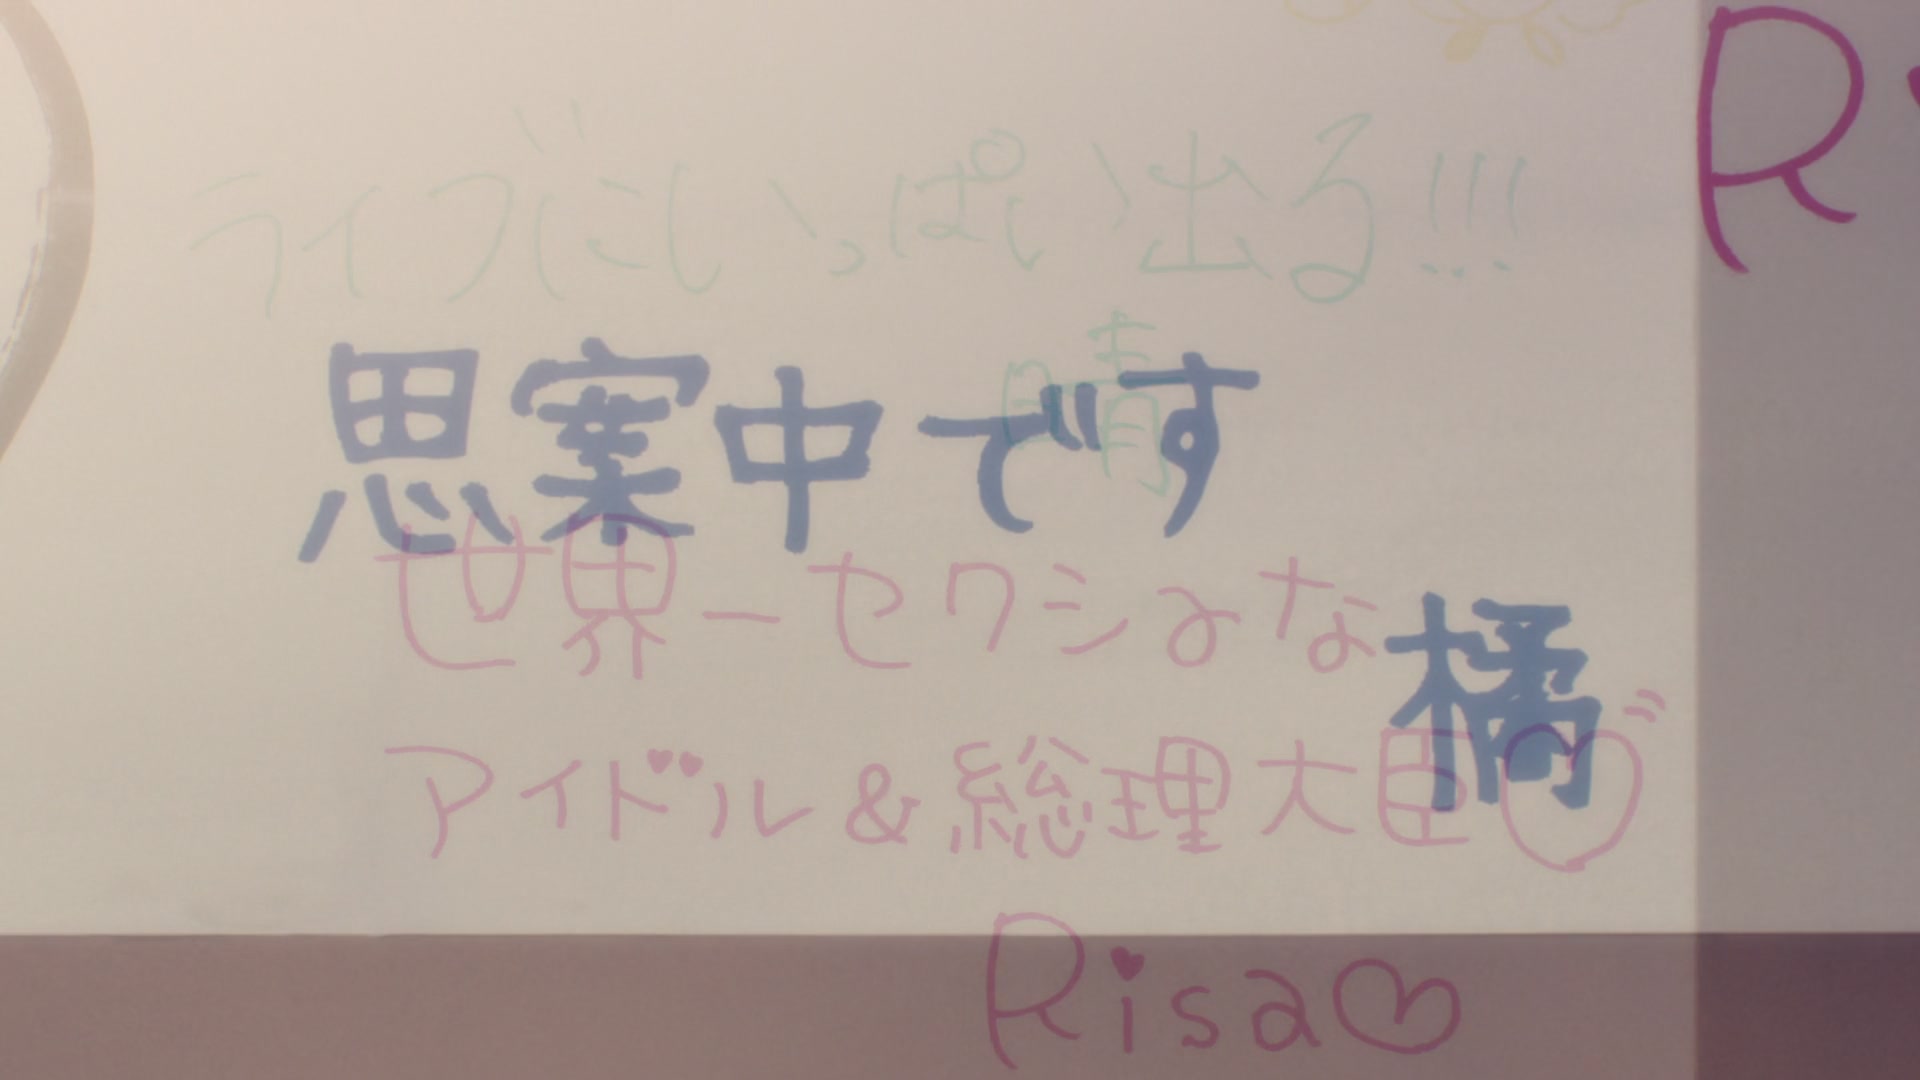 ライブにいっぱい出る!!!
晴
思案中です
橘
世界一セクシィな
アイドル&総理大臣♡"
Risa♡
R